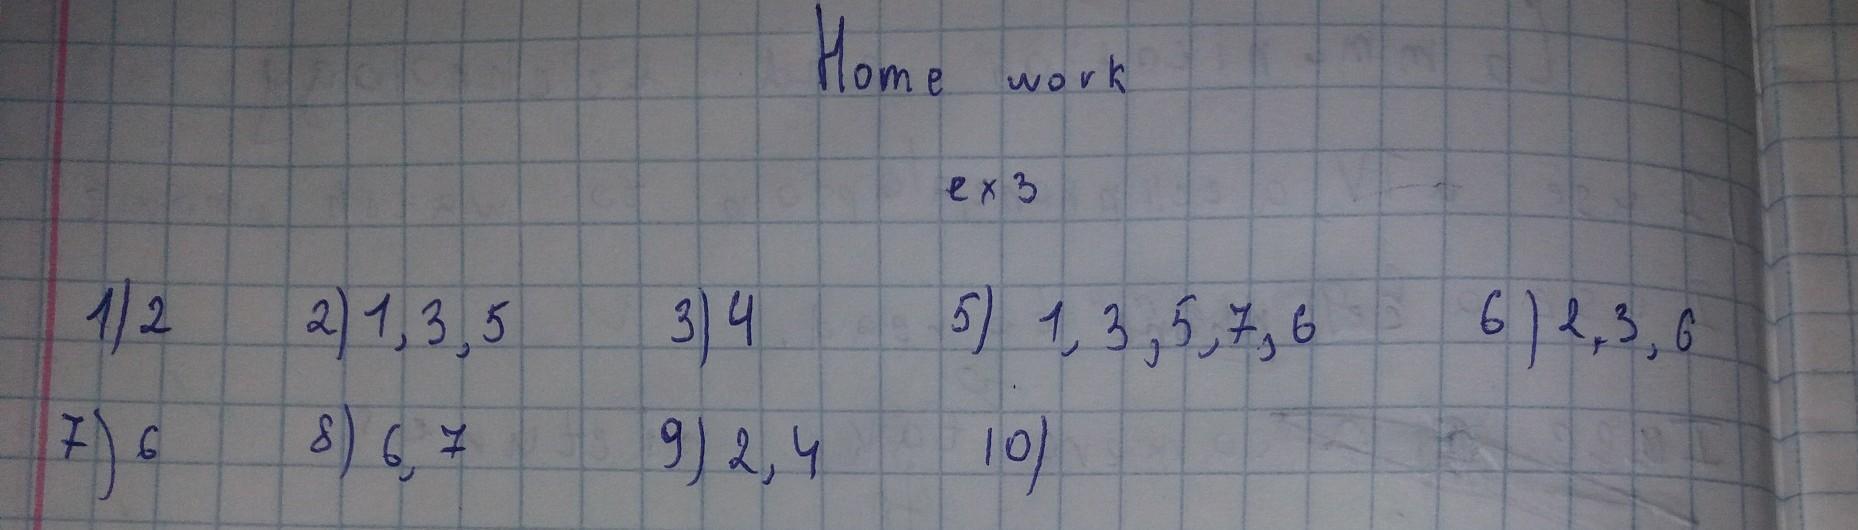 Home work
ex 3
1) 2 2) 1, 3, 5 3) 4 5) 1, 3, 5, 7, 6 6) 2, 3, 6
7) 6 8) 6, 7 9) 2, 4 10)